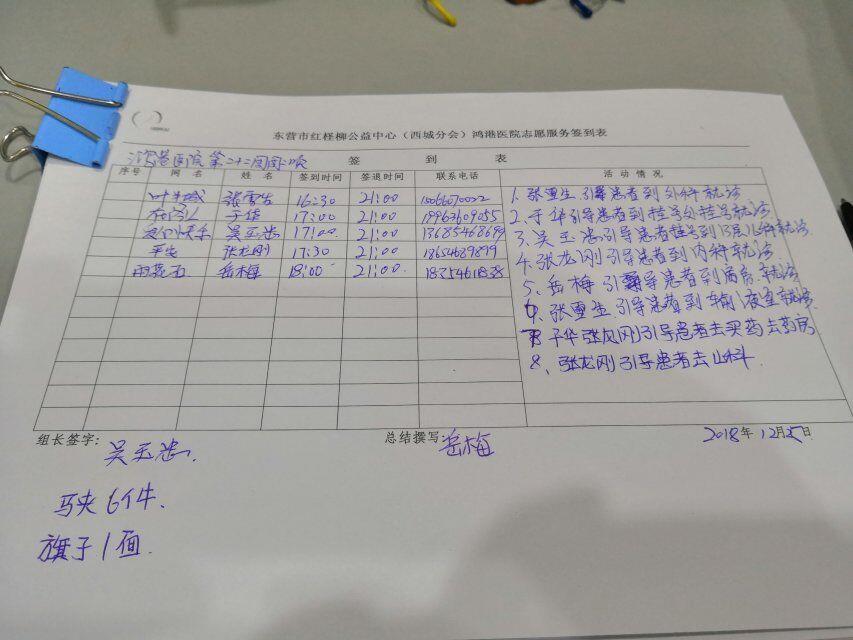 东营市红柽柳公益中心（西城分会）鸿港医院志愿服务签到表
鸿港医院第二十二周周二晚 签 到 表
序号 网 名 姓 名 签到时间 签退时间 联系电话 活 动 情 况
张重生 16:30 21:00
于华 17:00 21:00 18963609055
吴玉 17:00 21:00 13685468699
平安 张龙刚 17:30 21:00 18654689899
雨花石 岳梅 18:00 21:00 18254611838
1. 张重生引导患者到外科就诊
2. 于华引导患者到挂号处挂号就诊
3. 吴玉 引导患者挂号到13层儿科就诊
4. 张龙刚引导患者到内科就诊
5、岳梅引导患者到病房就诊
6、张重生引导患者到 就诊
7 于华张龙刚引导患者去买药去药房
8、张龙刚引导患者去儿科
组长签字： 吴玉 总结撰写 岳梅 2018年12月25日
马夹6件.
旗子1面.